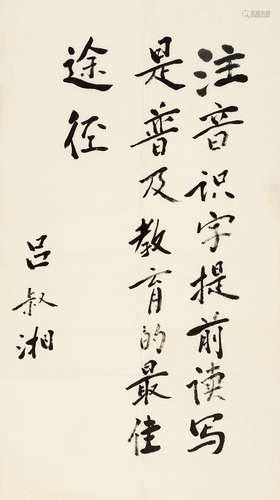 注音识字提前读写
是普及教育的最佳
途径
吕叔湘